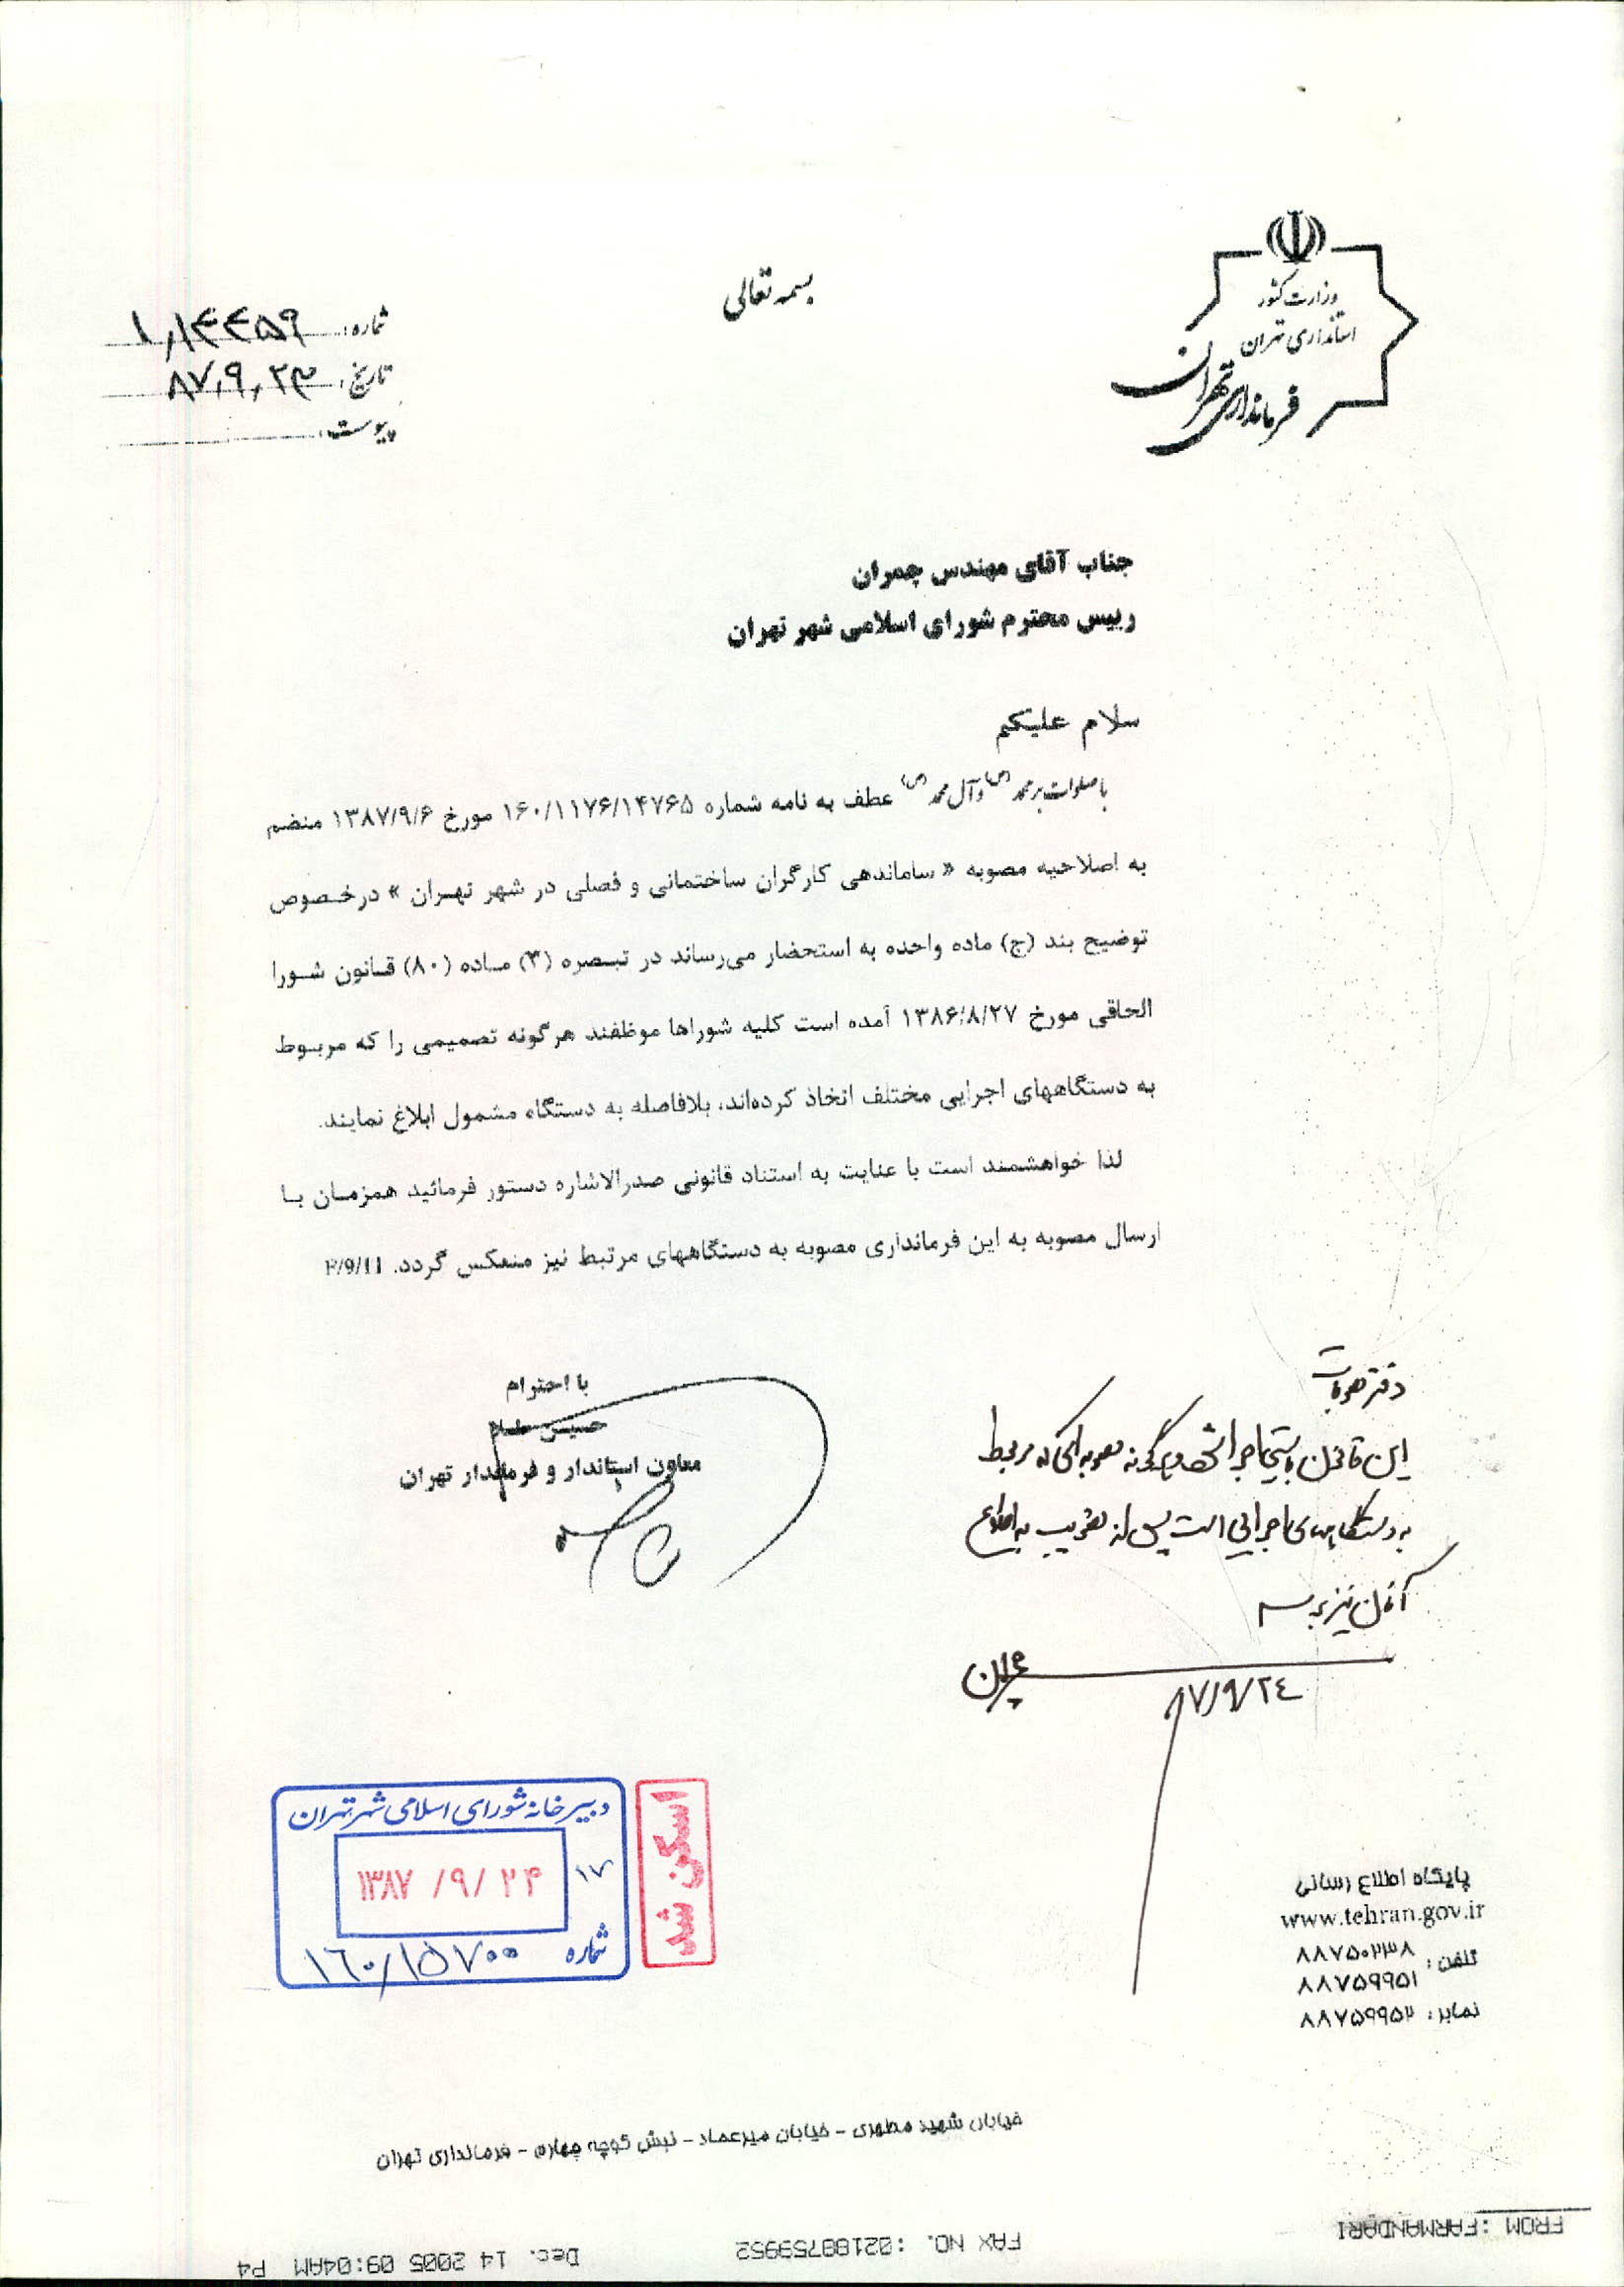 بسمه تعالی
وزارت کشور
استانداری تهران
فرمانداری تهران
شماره: ۱٫۱۴۴۵۹
تاریخ: ۸۷٫۹٫۲۳
پیوست:
جناب آقای مهندس چمران
رییس محترم شورای اسلامی شهر تهران
سلام علیکم
با صلوات بر محمد (ص) و آل محمد (ص) عطف به نامه شماره ۱۶۰/۱۱۷۶/۱۴۷۶۵ مورخ ۱۳۸۷/۹/۶ منضم
به اصلاحیه مصوبه « ساماندهی کارگران ساختمانی و فصلی در شهر تهران » درخصوص
توضیح بند (ج) ماده واحده به استحضار می‌رساند در تبصره (۳) ماده (۸۰) قانون شورا
الحاقی مورخ ۱۳۸۶/۸/۲۷ آمده است کلیه شوراها موظفند هرگونه تصمیمی را که مربوط
به دستگاههای اجرایی مختلف اتخاذ کرده‌اند، بلافاصله به دستگاه مشمول ابلاغ نمایند.
لذا خواهشمند است با عنایت به استناد قانونی صدرالاشاره دستور فرمائید همزمان با
ارسال مصوبه به این فرمانداری مصوبه به دستگاههای مرتبط نیز منعکس گردد.
با احترام
حسین طلا
معاون استاندار و فرماندار تهران
دفتر مصوبات
این قانون بایستی اجرا شود و هرگونه مصوبه‌ای که مربوط
به دستگاههای اجرایی است پس از تصویب به اطلاع
آنان نیز برسد
چمران
۸۷/۹/۲۴
دبیرخانه شورای اسلامی شهر تهران
۱۷
۱۳۸۷ /۹/ ۲۴
شماره ۱۶۰/۱۵۷۰۰
اسکن شد
پایگاه اطلاع رسانی
www.tehran.gov.ir
تلفن: ۸۸۷۵۰۲۳۸
۸۸۷۵۹۹۵۱
نمابر: ۸۸۷۵۹۹۵۲
خیابان شهید مطهری - خیابان میرعماد - نبش کوچه چهارم - فرمانداری تهران
FROM :FARMANDARI
FAX NO. :02188759952
Dec. 14 2005 09:04AM P4